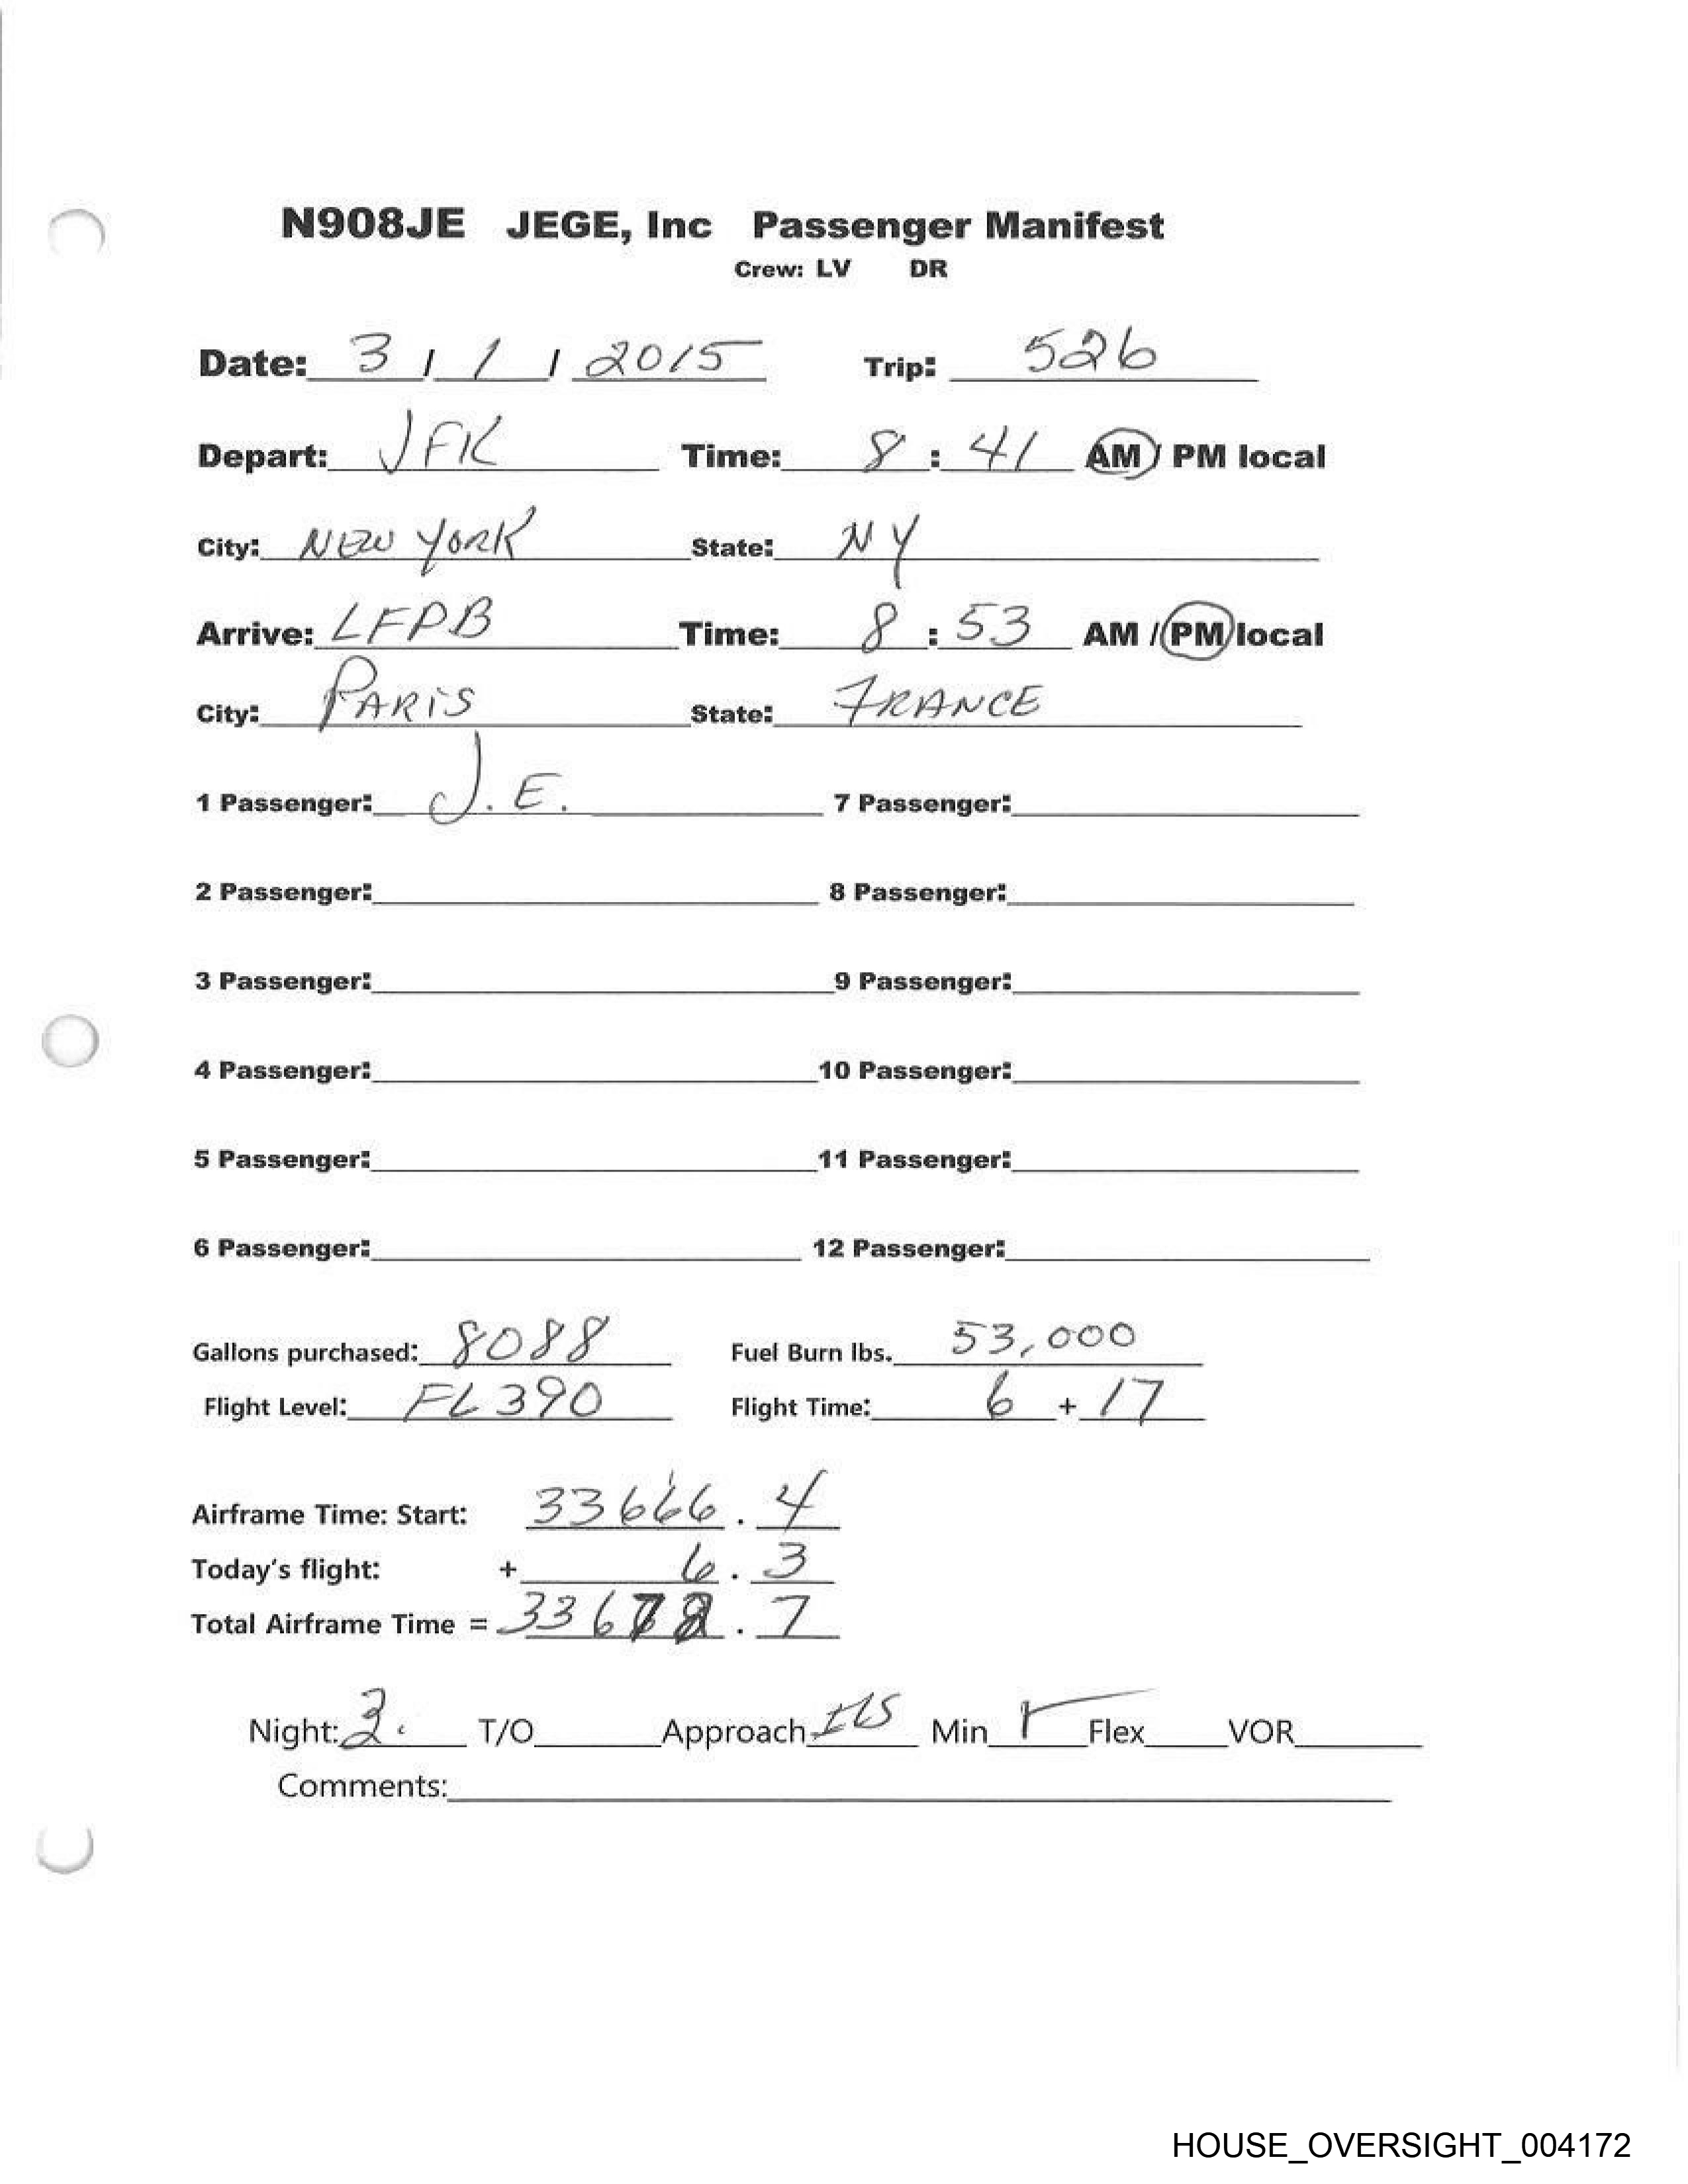 N908JE JEGE, Inc Passenger Manifest
Crew: LV DR
Date: 3 / 1 / 2015 Trip: 526
Depart: JFK Time: 8 : 41 AM / PM local
City: NEW YORK State: NY
Arrive: LFPB Time: 8 : 53 AM / PM local
City: PARIS State: FRANCE
1 Passenger: J.E. 7 Passenger:
2 Passenger: 8 Passenger:
3 Passenger: 9 Passenger:
4 Passenger: 10 Passenger:
5 Passenger: 11 Passenger:
6 Passenger: 12 Passenger:
Gallons purchased: 8088 Fuel Burn lbs. 53,000
Flight Level: FL390 Flight Time: 6 + 17
Airframe Time: Start: 33666.4
Today's flight: + 6.3
Total Airframe Time = 33672.7
Night: T/O Approach ILS Min Flex VOR
Comments:
HOUSE_OVERSIGHT_004172